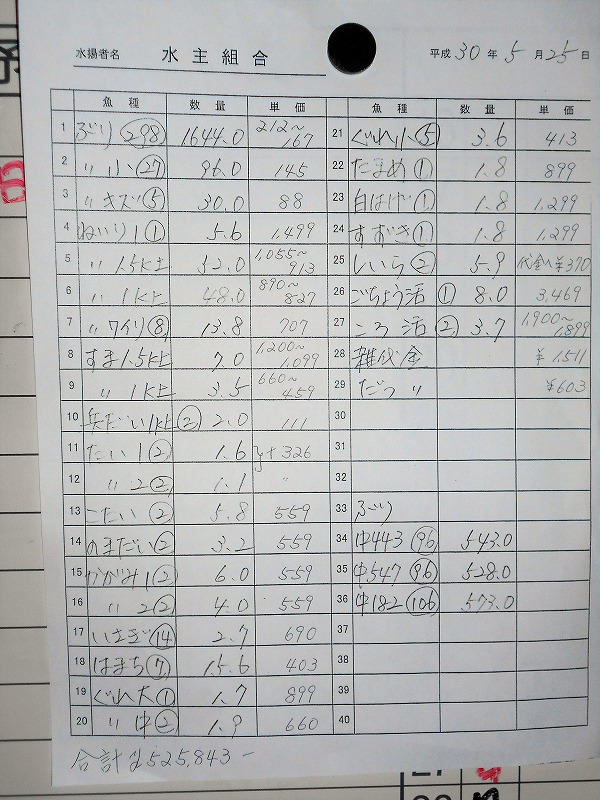 水揚者名 水主組合 平成30年5月25日
魚種 数量 単価
1 ぶり(298) 1644.0 212~167
2 〃 小(27) 96.0 145
3 〃 キズ(5) 30.0 88
4 ねいり 1 (1) 5.6 1,499
5 〃 1.5K上 52.0 1,055~913
6 〃 1K上 48.0 890~827
7 〃 ワイリ(8) 13.8 707
8 すま 1.5K上 7.0 1,200~1,099
9 〃 1K上 3.5 660~459
10 兵だい 1K上(2) 2.0 111
11 たい 1 (2) 1.6 }+326
12 〃 2(2) 1.1 〃
13 こたい(2) 5.8 559
14 のまだい(2) 3.2 559
15 かがみ 1(2) 6.0 559
16 〃 2(2) 4.0 559
17 いさぎ(14) 2.7 690
18 はまち(7) 15.6 403
19 ぐれ大(1) 1.7 899
20 〃 中(2) 1.9 660
魚種 数量 単価
21 ぐれ小(5) 3.6 413
22 たまめ(1) 1.8 899
23 白はげ(1) 1.8 1,299
24 すずき(1) 1.8 1,299
25 しいら(2) 5.9 代金へ¥370
26 ごちょう活(1) 8.0 3,469
27 ころ活(2) 3.7 1,900~1,899
28 雑代金 ¥1,511
29 だつ 〃 ¥603
30
31
32
33 ぶり
34 中443(96) 543.0
35 中547(96) 528.0
36 中182(106) 573.0
37
38
39
40
合計 ¥525,843-